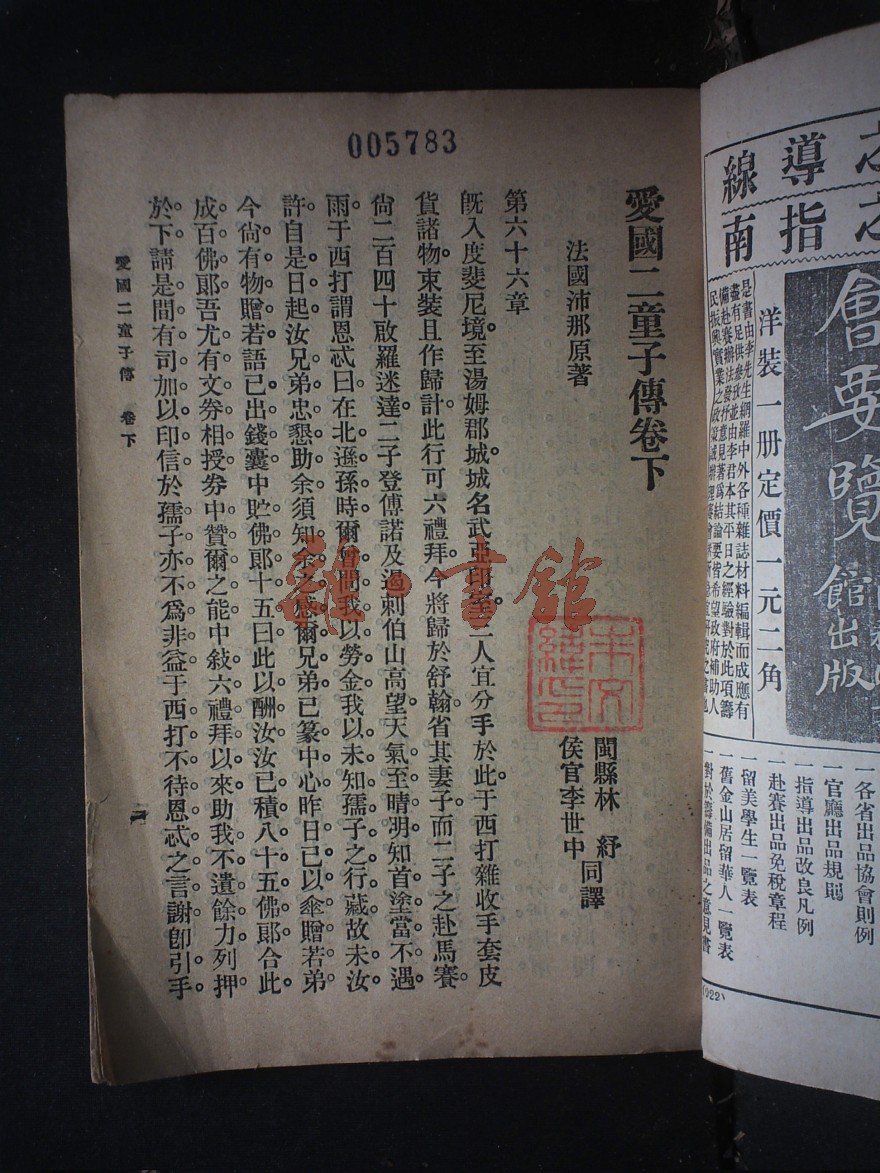 005783
愛國二童子傳卷下
法國沛那原著
閩縣林 紓
侯官李世中
同譯
第六十六章
旣入度斐尼境。至湯姆郡城。城名武亞印。至二人宜分手於此。于西打雜收手套皮
貨諸物。束裝且作歸計。此行可六禮拜。今將歸於舒翰。省其妻子。而二子之赴馬賽。
尙二百四十啟羅迷達。二子登傳諾及過刺伯山高望。天氣至晴明。知首塗當不遇
雨。于西打謂恩忒曰。在北遜孫時。爾曾問我以勞金。我以未知孺子之行藏。故未汝
許。自是日起。汝兄弟忠懇助余。須知余之感爾兄弟。已篆中心。昨日已以傘贈若弟。
今尙有物贈若。語已。出錢囊。中貯佛郎十五。曰。此以酬汝。汝已積八十五佛郎。合此
成百佛郎。吾尤有文券相授。券中贊爾之能。中敍六禮拜以來。助我不遺餘力。列押
於下。請是間有司加以印信。於孺子亦不爲非益。于西打不待恩忒之言謝。卽引手
愛國二童子傳 卷下
一
雅書館
導線
指南
會要覽
館出版
洋裝一册定價一元二角
是書由李先生網羅中外各種雜誌材料編輯而成應有
盡有足供參攷並由李君本其平日之經驗對於此項籌
一各省出品協會則例
一官廳出品規則
一指導出品改良凡例
一赴賽出品免稅章程
一留美學生一覽表
一舊金山居留華人一覽表
一對於籌備出品之意見書